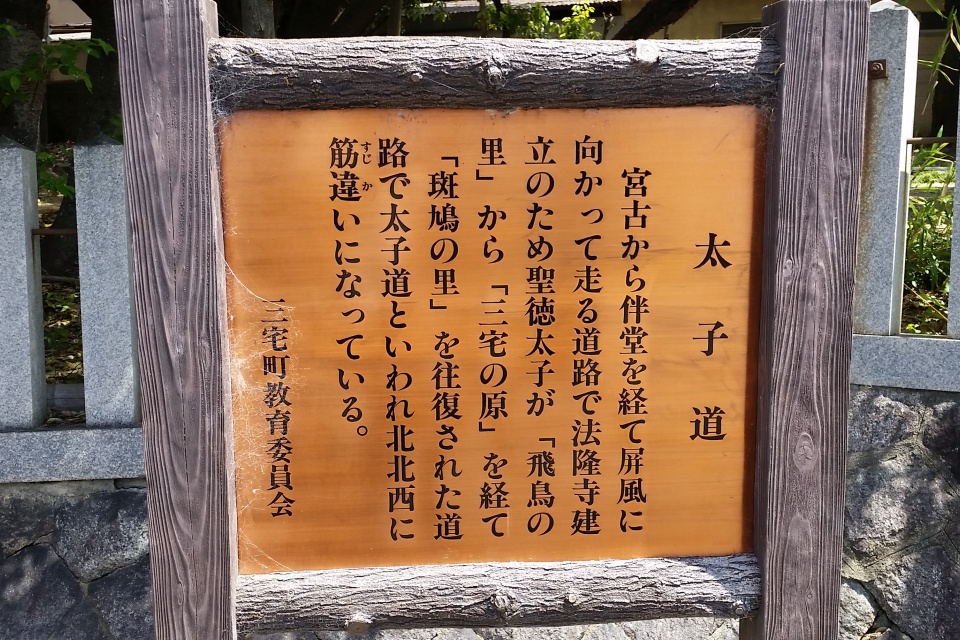 太子道
宮古から伴堂を経て屏風に
向かって走る道路で法隆寺建
立のため聖徳太子が「飛鳥の
里」から「三宅の原」を経て
「斑鳩の里」を往復された道
路で太子道といわれ北北西に
筋違いになっている。
すじ か
三宅町教育委員会